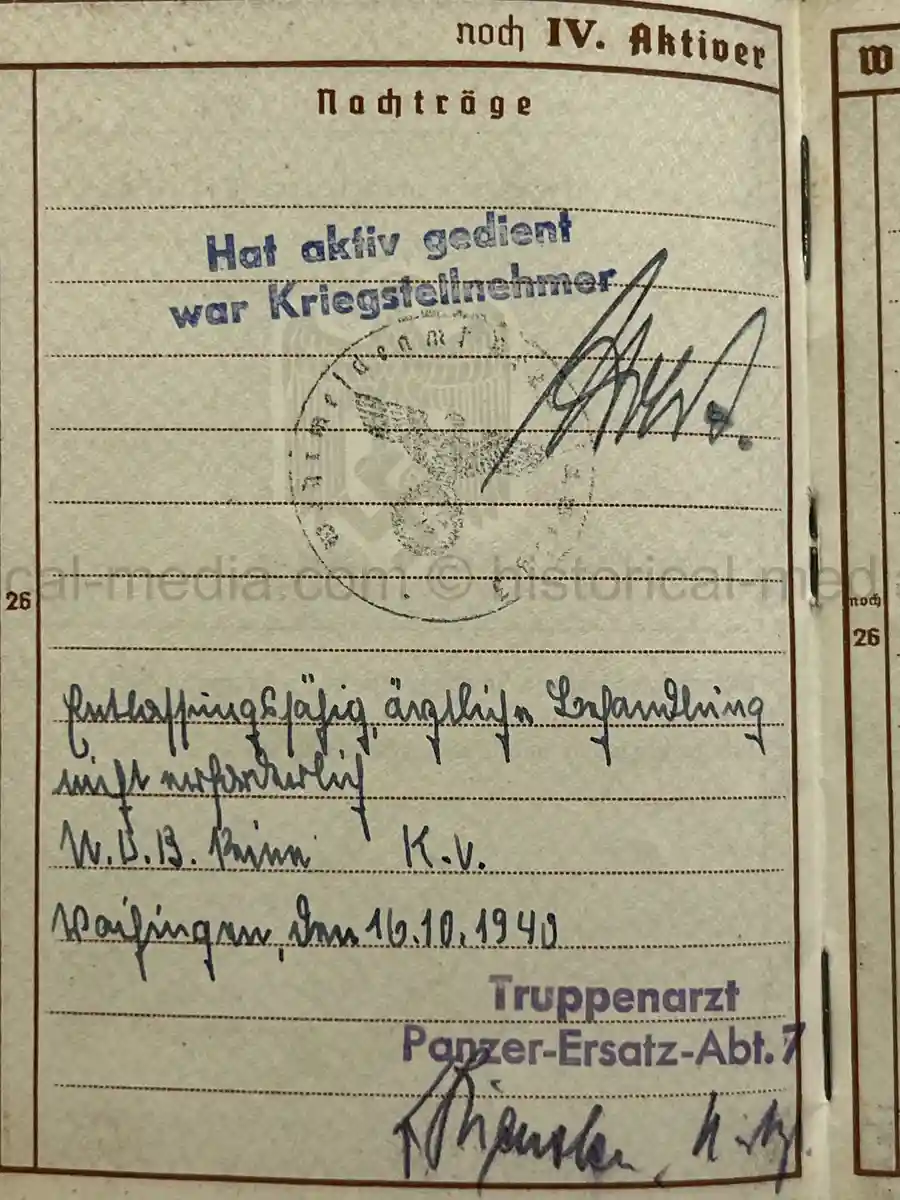 noch IV. Aktiver
W
Nachträge
Hat aktiv gedient
war Kriegsteilnehmer
Wehrmeldeamt
cal-media.com © historical-med
26
noch
26
Entlassungsfähig, ärztliche Behandlung
nicht erforderlich
W.D.B. keine K.V.
Vaihingen, den 16.10.1940
Truppenarzt
Panzer-Ersatz-Abt. 7